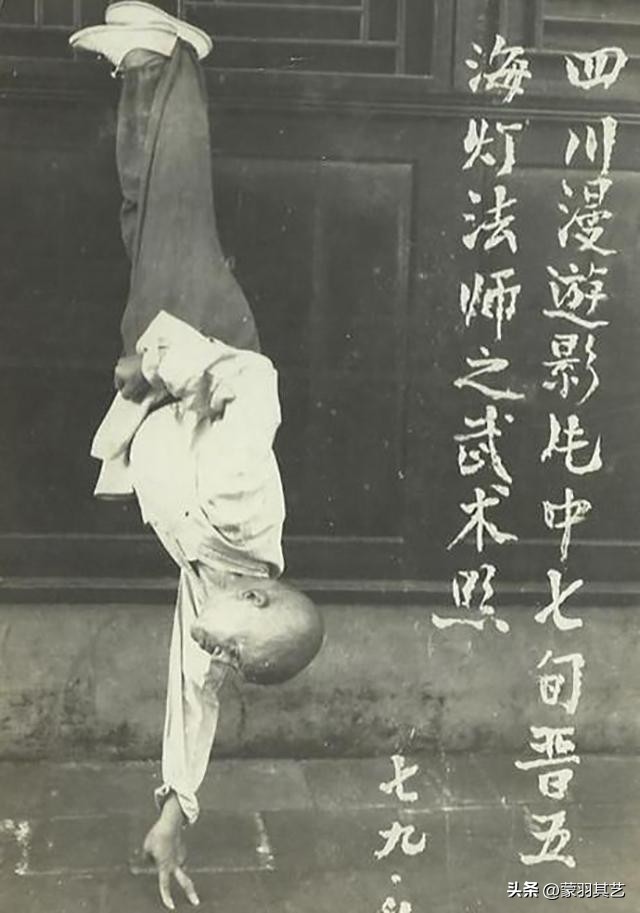 四川漫遊影片中七旬晋五
海灯法师之武术照
七九.
头条 @蒙羽其艺